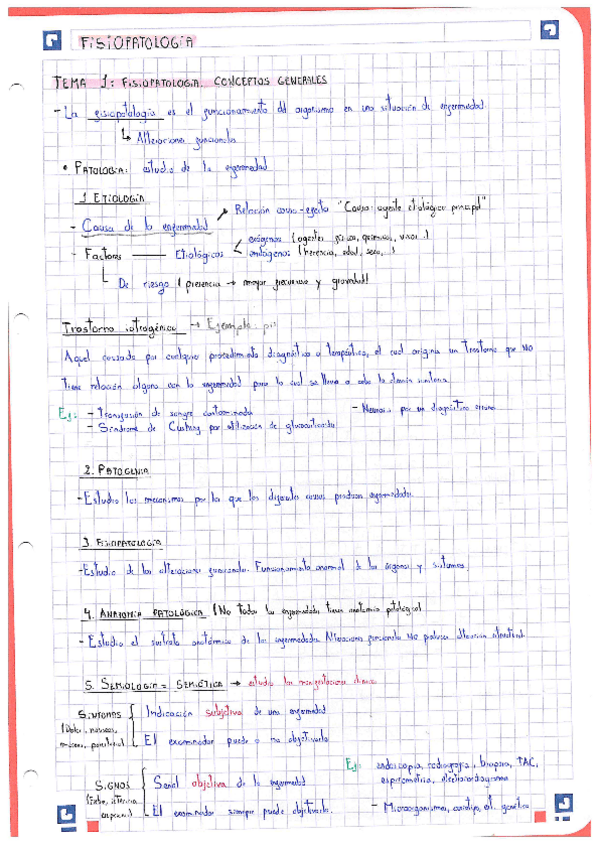 FISIOPATOLOGÍA
TEMA 1: FISIOPATOLOGÍA. CONCEPTOS GENERALES
- La fisiopatología es el funcionamiento del organismo en una situación de enfermedad.
↳ Alteraciones funcionales
• PATOLOGÍA: estudio de la enfermedad
1 ETIOLOGÍA
Relación causa-efecto "Causa: agente etiológico principal"
- Causa de la enfermedad
exógenos (agentes físicos, químicos, vivos..)
- Factores Etiológicos
endógenos (herencia, edad, sexo, .)
De riesgo (presencia → mayor frecuencia y gravedad)
Trastorno iatrogénico → Ejemplo:
Aquel causado por cualquier procedimiento diagnóstico o terapéutico, el cual origina un trastorno que NO
tiene relación alguna con la enfermedad para la cual se lleva a cabo la
Ej: - Transfusión de sangre contaminada - Neurosis por un diagnóstico erróneo
- Síndrome de Cushing por utilización de glucocorticoides
2. PATOGENIA
- Estudia los mecanismos por los que las causas producen enfermedades.
3. FISIOPATOLOGÍA
- Estudio de las alteraciones funcionales. Funcionamiento anormal de los órganos y sistemas
4. ANATOMÍA PATOLÓGICA (No todas las enfermedades tienen anatomía patológica)
- Estudia el sustrato anatómico de las enfermedades. Alteraciones funcionales NO
5. SEMIOLOGÍA = SEMIÓTICA → estudia las manifestaciones clínicas
SÍNTOMAS Indicación subjetiva de una enfermedad
(dolor, náuseas,
El examinador puede o no objetivarlo
Ej: endoscopia, radiografía, biopsia, TAC,
SIGNOS Señal objetiva de la enfermedad espirometría, electrocardiograma
(fiebre, ictericia,
El examinador siempre puede objetivarlo. - Microorganismos, est. genético